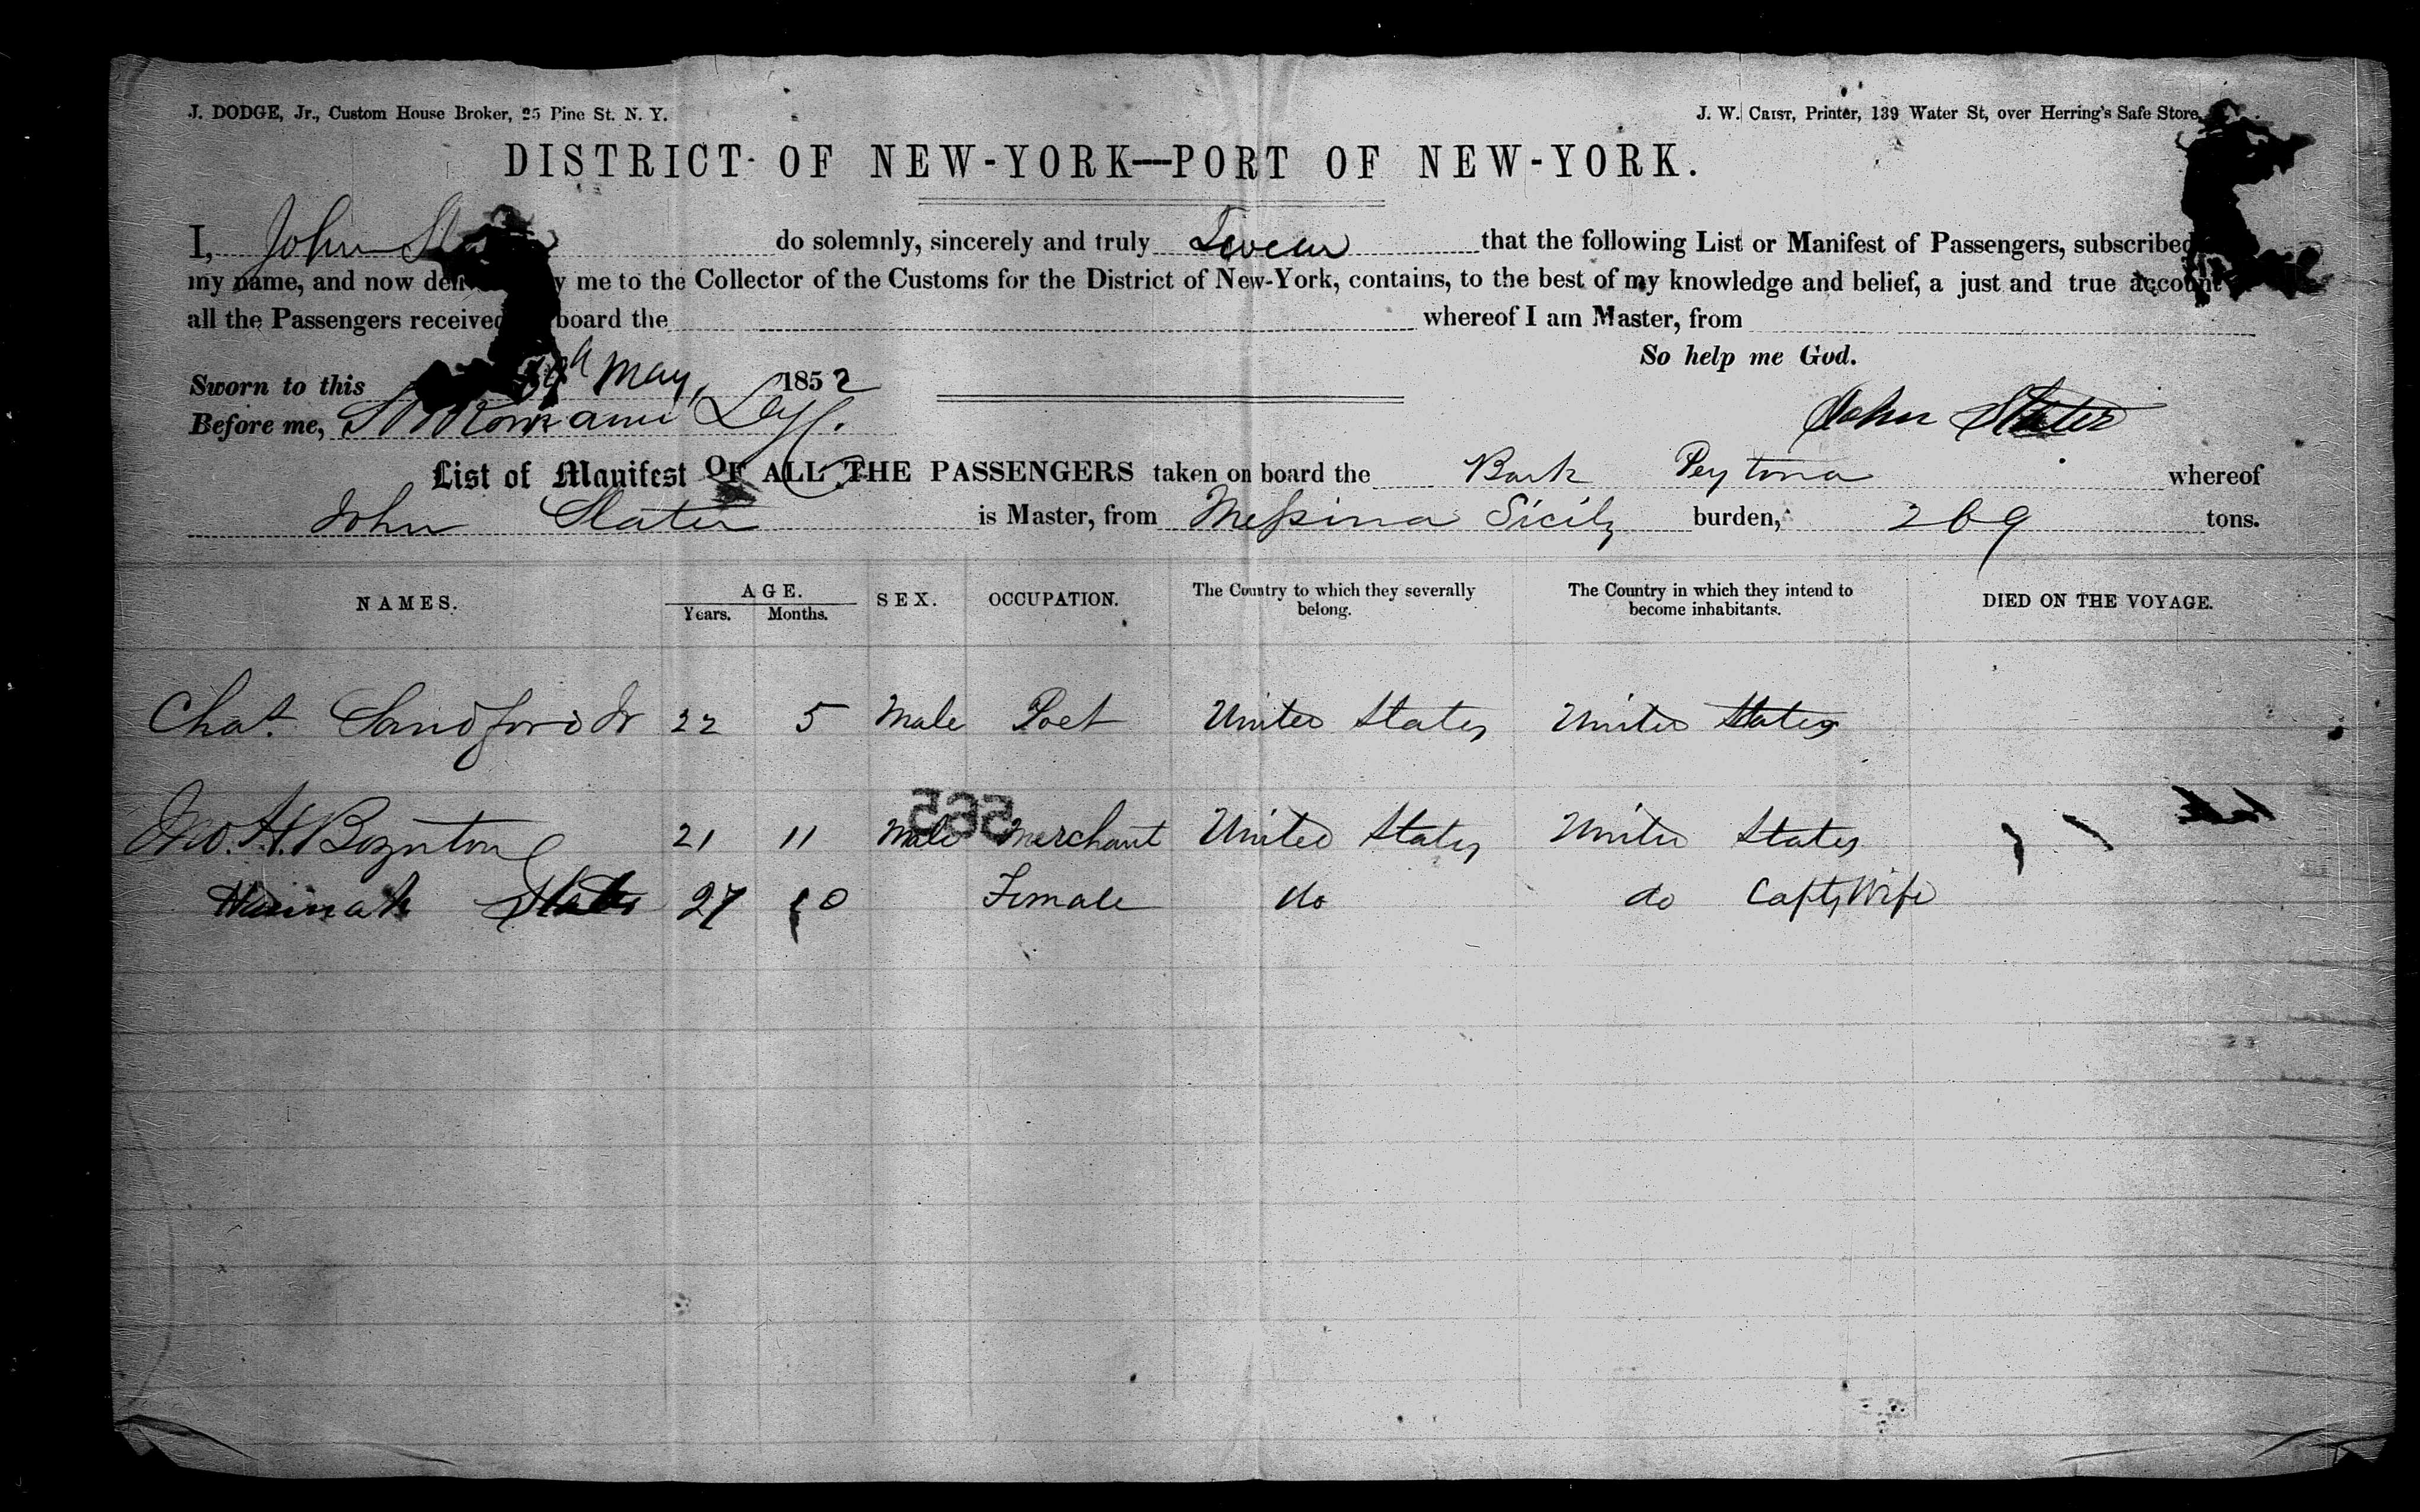 J. DODGE, Jr., Custom House Broker, 25 Pine St. N. Y.
J. W. CRIST, Printer, 139 Water St, over Herring's Safe Store
DISTRICT OF NEW-YORK—PORT OF NEW-YORK.
I, John do solemnly, sincerely and truly Swear that the following List or Manifest of Passengers, subscribed
my name, and now me to the Collector of the Customs for the District of New-York, contains, to the best of my knowledge and belief, a just and true account
all the Passengers received board the whereof I am Master, from
So help me God.
Sworn to this May, 1852
Before me,
John Slater
List of Manifest OF ALL THE PASSENGERS taken on board the Bark Peytona whereof
John Slater is Master, from Messina Sicily burden, 269 tons.
NAMES. AGE. SEX. OCCUPATION. The Country to which they severally belong. The Country in which they intend to become inhabitants. DIED ON THE VOYAGE.
Years. Months.
Chas. Sandford Jr 22 5 Male Poet United States United States
565
Jno. H. Boynton 21 11 Male Merchant United States United States
Hannah Slater 27 10 Female do do Capts Wife